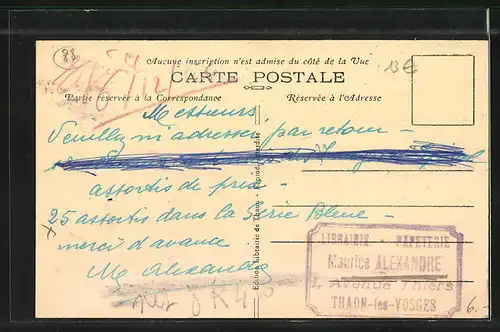 88
Aucune inscription n'est admise du côté de la Vue
13€
CARTE POSTALE
Partie réservée à la Correspondance
Réservée à l'Adresse
Messieurs
Veuillez m'adresser par retour -
assortis de prix -
25 assortis dans la Série Bleue -
x
merci d'avance
Mce Alexandre
Edition Librairie de Thaon - Reprod. interdite
LIBRAIRIE - PAPETERIE
Maurice ALEXANDRE
Avenue Thiers
THAON-les-VOSGES
6.-